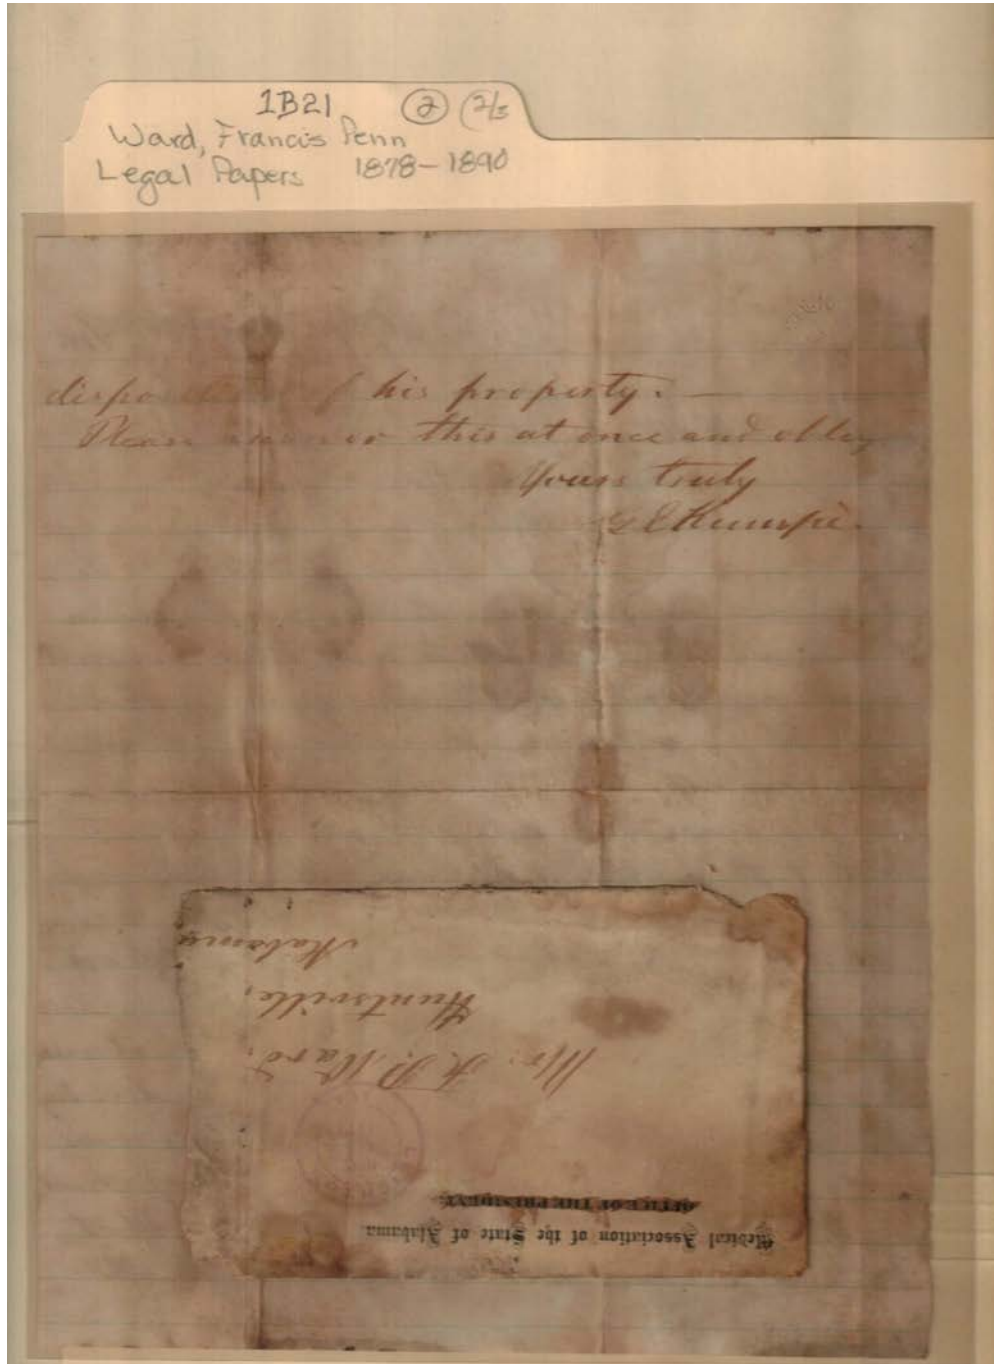 1B21 ② (2/3
Ward, Francis Penn
Legal Papers 1878-1890
his property.
Please answer this at once and oblig
Yours truly
Medical Association of the State of Alabama.
OFFICE OF THE PRESIDENT.
Mr. F. P. Ward.
Huntsville,
Alabama